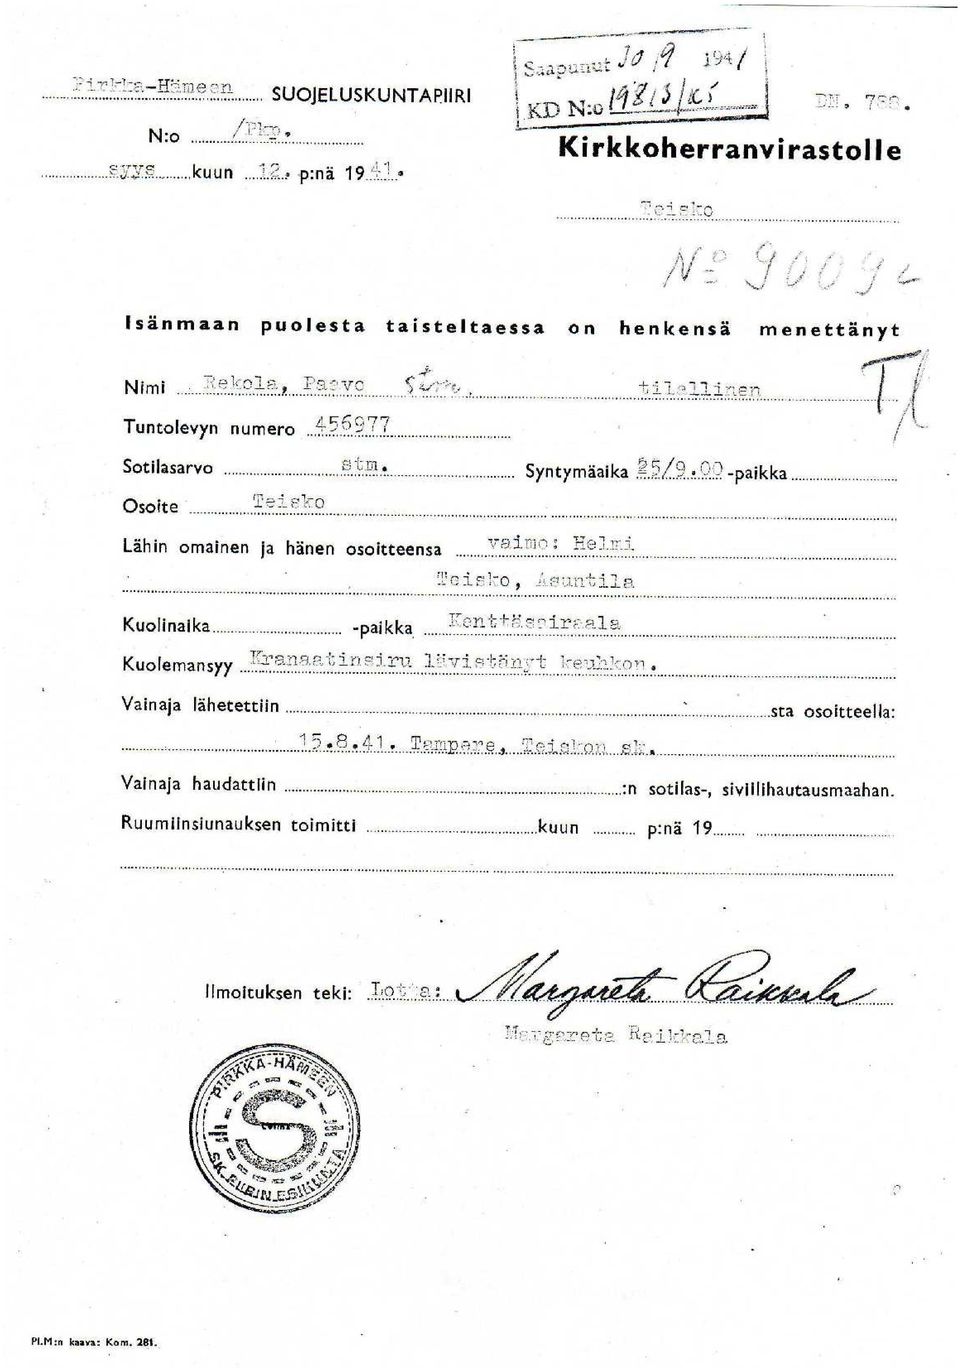 Pirkka-Hämeen SUOJELUSKUNTAPIIRI
N:o /Pkp.
syys kuun 12. p:nä 1941.
Saapunut 30/9 1941
KD N:o
DN. 788.
Kirkkoherranvirastolle
Teisko
No 9009
Isänmaan puolesta taisteltaessa on henkensä menettänyt
Nimi Rekola, Paavo stm. tilallinen
Tuntolevyn numero 456977
Sotilasarvo stm. Syntymäaika 25/9.00 -paikka
Osoite Teisko
Lähin omainen ja hänen osoitteensa vaimo: Helmi
Teisko, Asuntila
Kuolinaika -paikka Kenttäsairaala
Kuolemansyy Kranaatinsiru lävistänyt keuhkon.
Vainaja lähetettiin sta osoitteella:
15.8.41. Tampere, Teiskon sk.
Vainaja haudattiin :n sotilas-, siviilihautausmaahan.
Ruumiinsiunauksen toimitti kuun p:nä 19
Ilmoituksen teki: Lotta: Margareta Raikkala
Margareta Raikkala
PIRKKA-HÄMEEN
S
SK. PIIRIN ESIKUNTA
Pl.M:n kaava: Kom. 281.